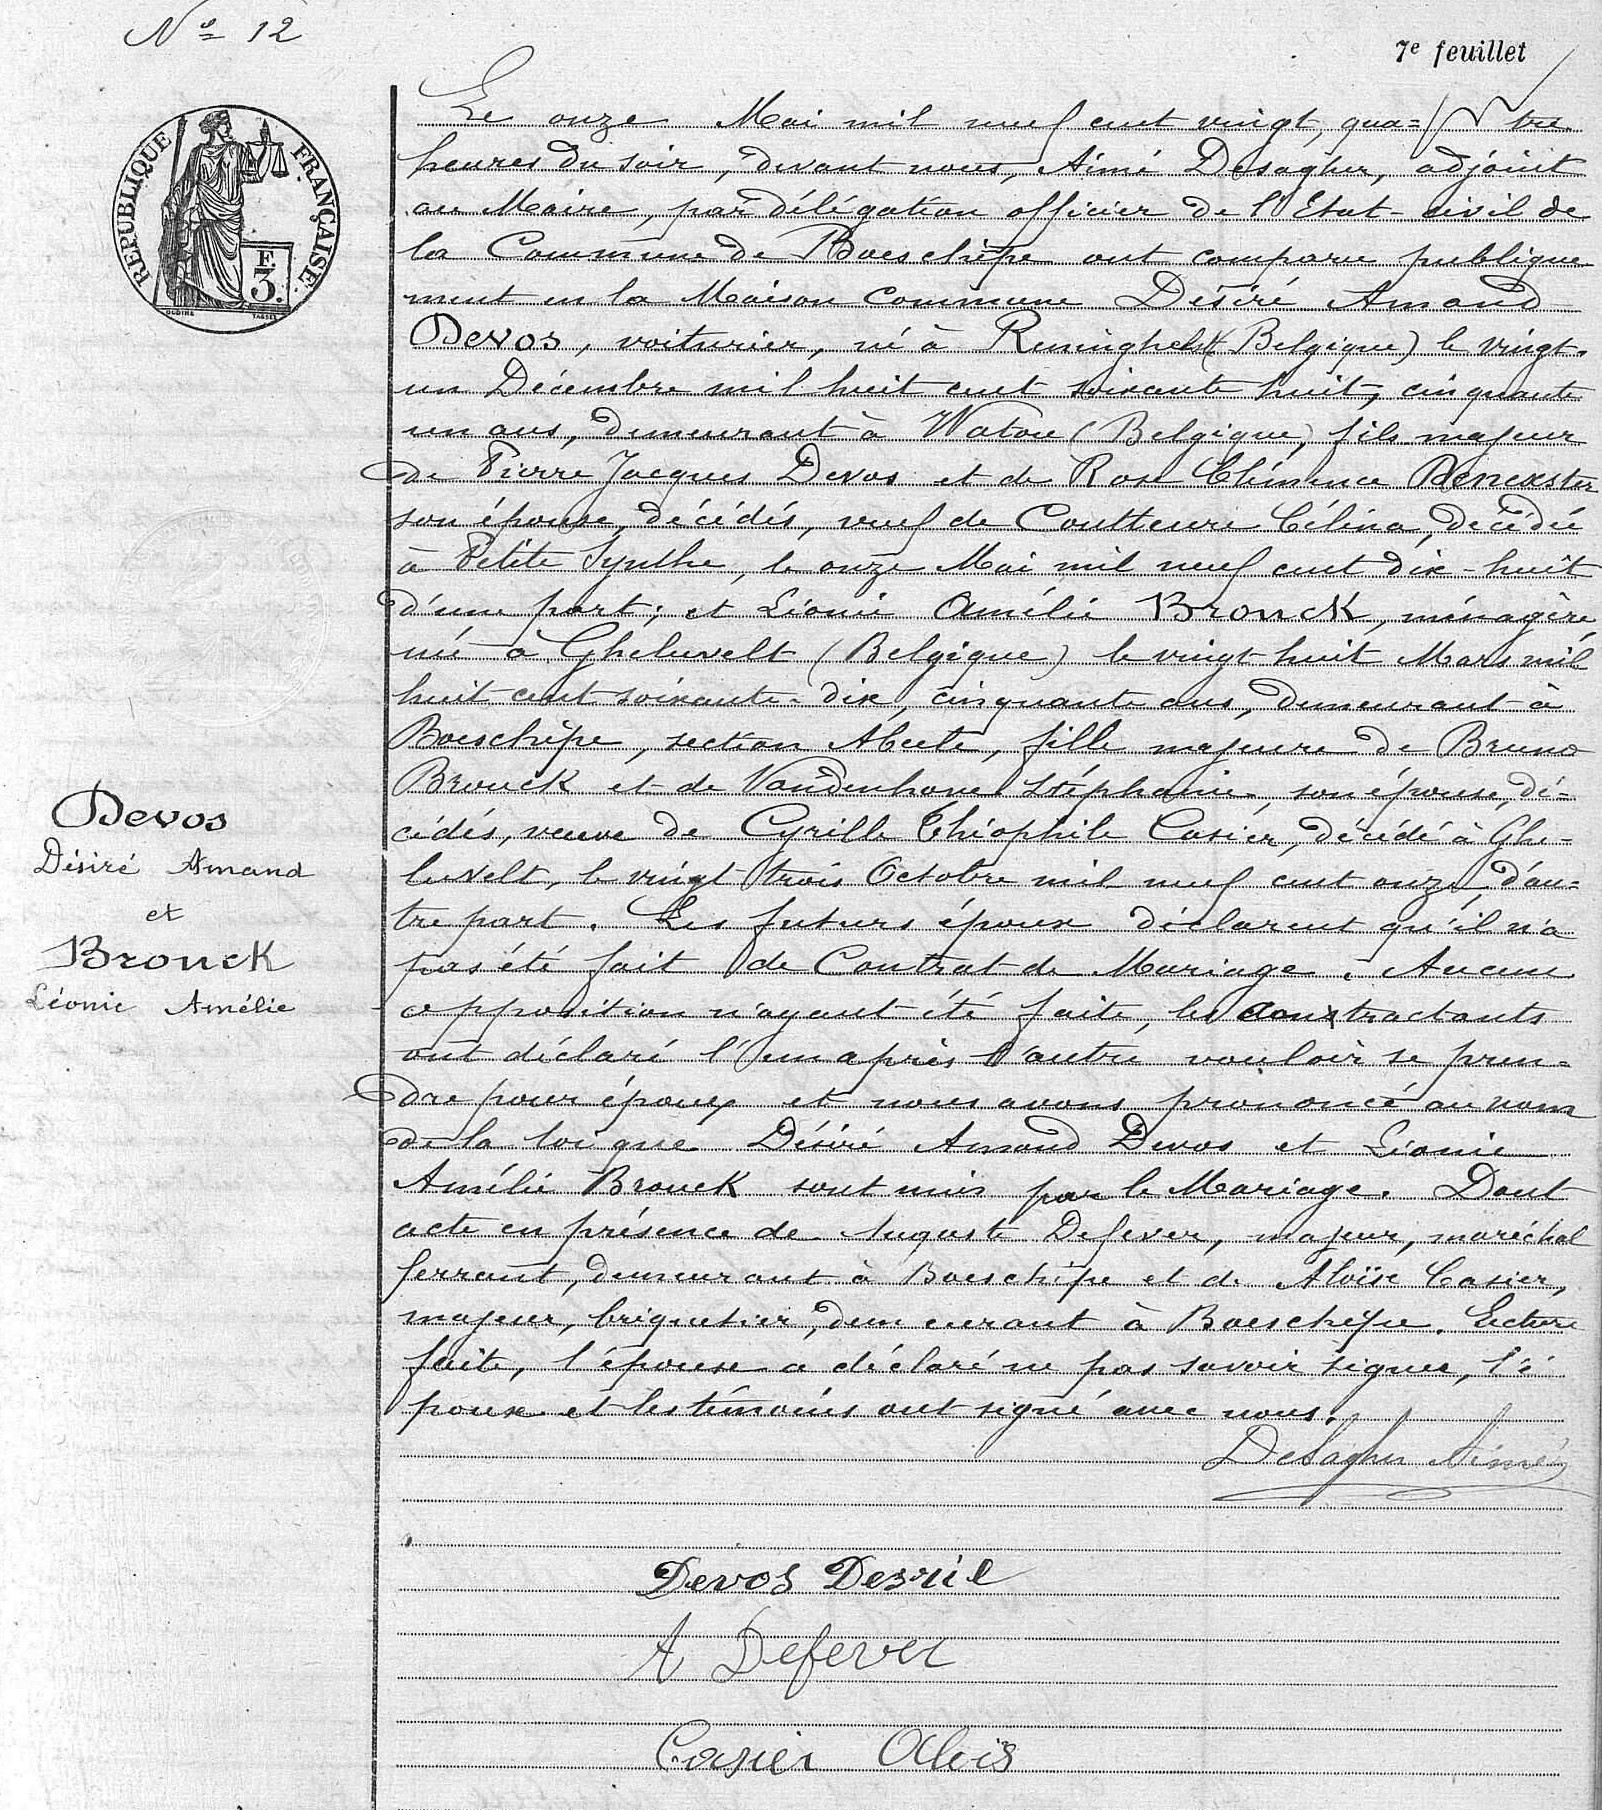 N° 12
7e feuillet
REPUBLIQUE FRANÇAISE
F.
3.
OUDINÉ
TASSET
Le onze Mai mil neuf cent vingt, qua=tre
heures du soir, devant nous, Aimé Desagher, adjoint
au Maire, par délégation officier de l'Etat-civil de
la Commune de Boeschèpe ont comparu publique
ment en la Maison commune Désiré Amand
Devos, voiturier, né à Reninghelst (Belgique) le vingt-
un Décembre mil huit cent soixante huit, cinquante
un ans, demeurant à Watou (Belgique), fils majeur
de Pierre Jacques Devos et de Rose Clémence
son épouse, décédés, veuf de Coutteure Célina, décédée
à Petite Synthe, le onze Mai mil neuf cent dix-huit
d'une part; et Léonie Amélie Brouck, ménagère
née à Gheluvelt (Belgique) le vingt huit Mars mil
huit cent soixante-dix, cinquante ans, demeurant à
Boeschèpe, section Abeele, fille majeure de Bruno
Brouck et de Vandenhove Stéphanie, son épouse, dé=
cédés, veuve de Cyrille Théophile Casier, décédé à Ghe=
luvelt, le vingt trois Octobre mil neuf cent onze, d'au=
tre part. Les futurs époux déclarent qu'il n'a
pas été fait de Contrat de Mariage. Aucune
opposition n'ayant été faite, les contractants
ont déclaré l'un après l'autre vouloir se pren=
dre pour époux et nous avons prononcé au nom
de la loi que Désiré Amand Devos et Léonie
Amélie Brouck sont unis par le Mariage. Dont
acte en présence de Auguste Defever, majeur, maréchal
ferrant, demeurant à Boeschèpe et de Aloïse Casier,
majeur, briquetier, demeurant à Boeschèpe. Lecture
faite, l'épouse a déclaré ne pas savoir signer, l'é
poux et les témoins ont signé avec nous.
Devos
Désiré Amand
et
Brouck
Léonie Amélie
Desagher Aimé
Devos
A Defever
Casier Aloïs